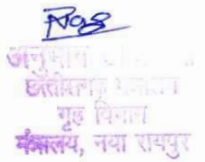 अनुभाग
छत्तीसगढ़ शासन
गृह विभाग
मंत्रालय, नवा रायपुर